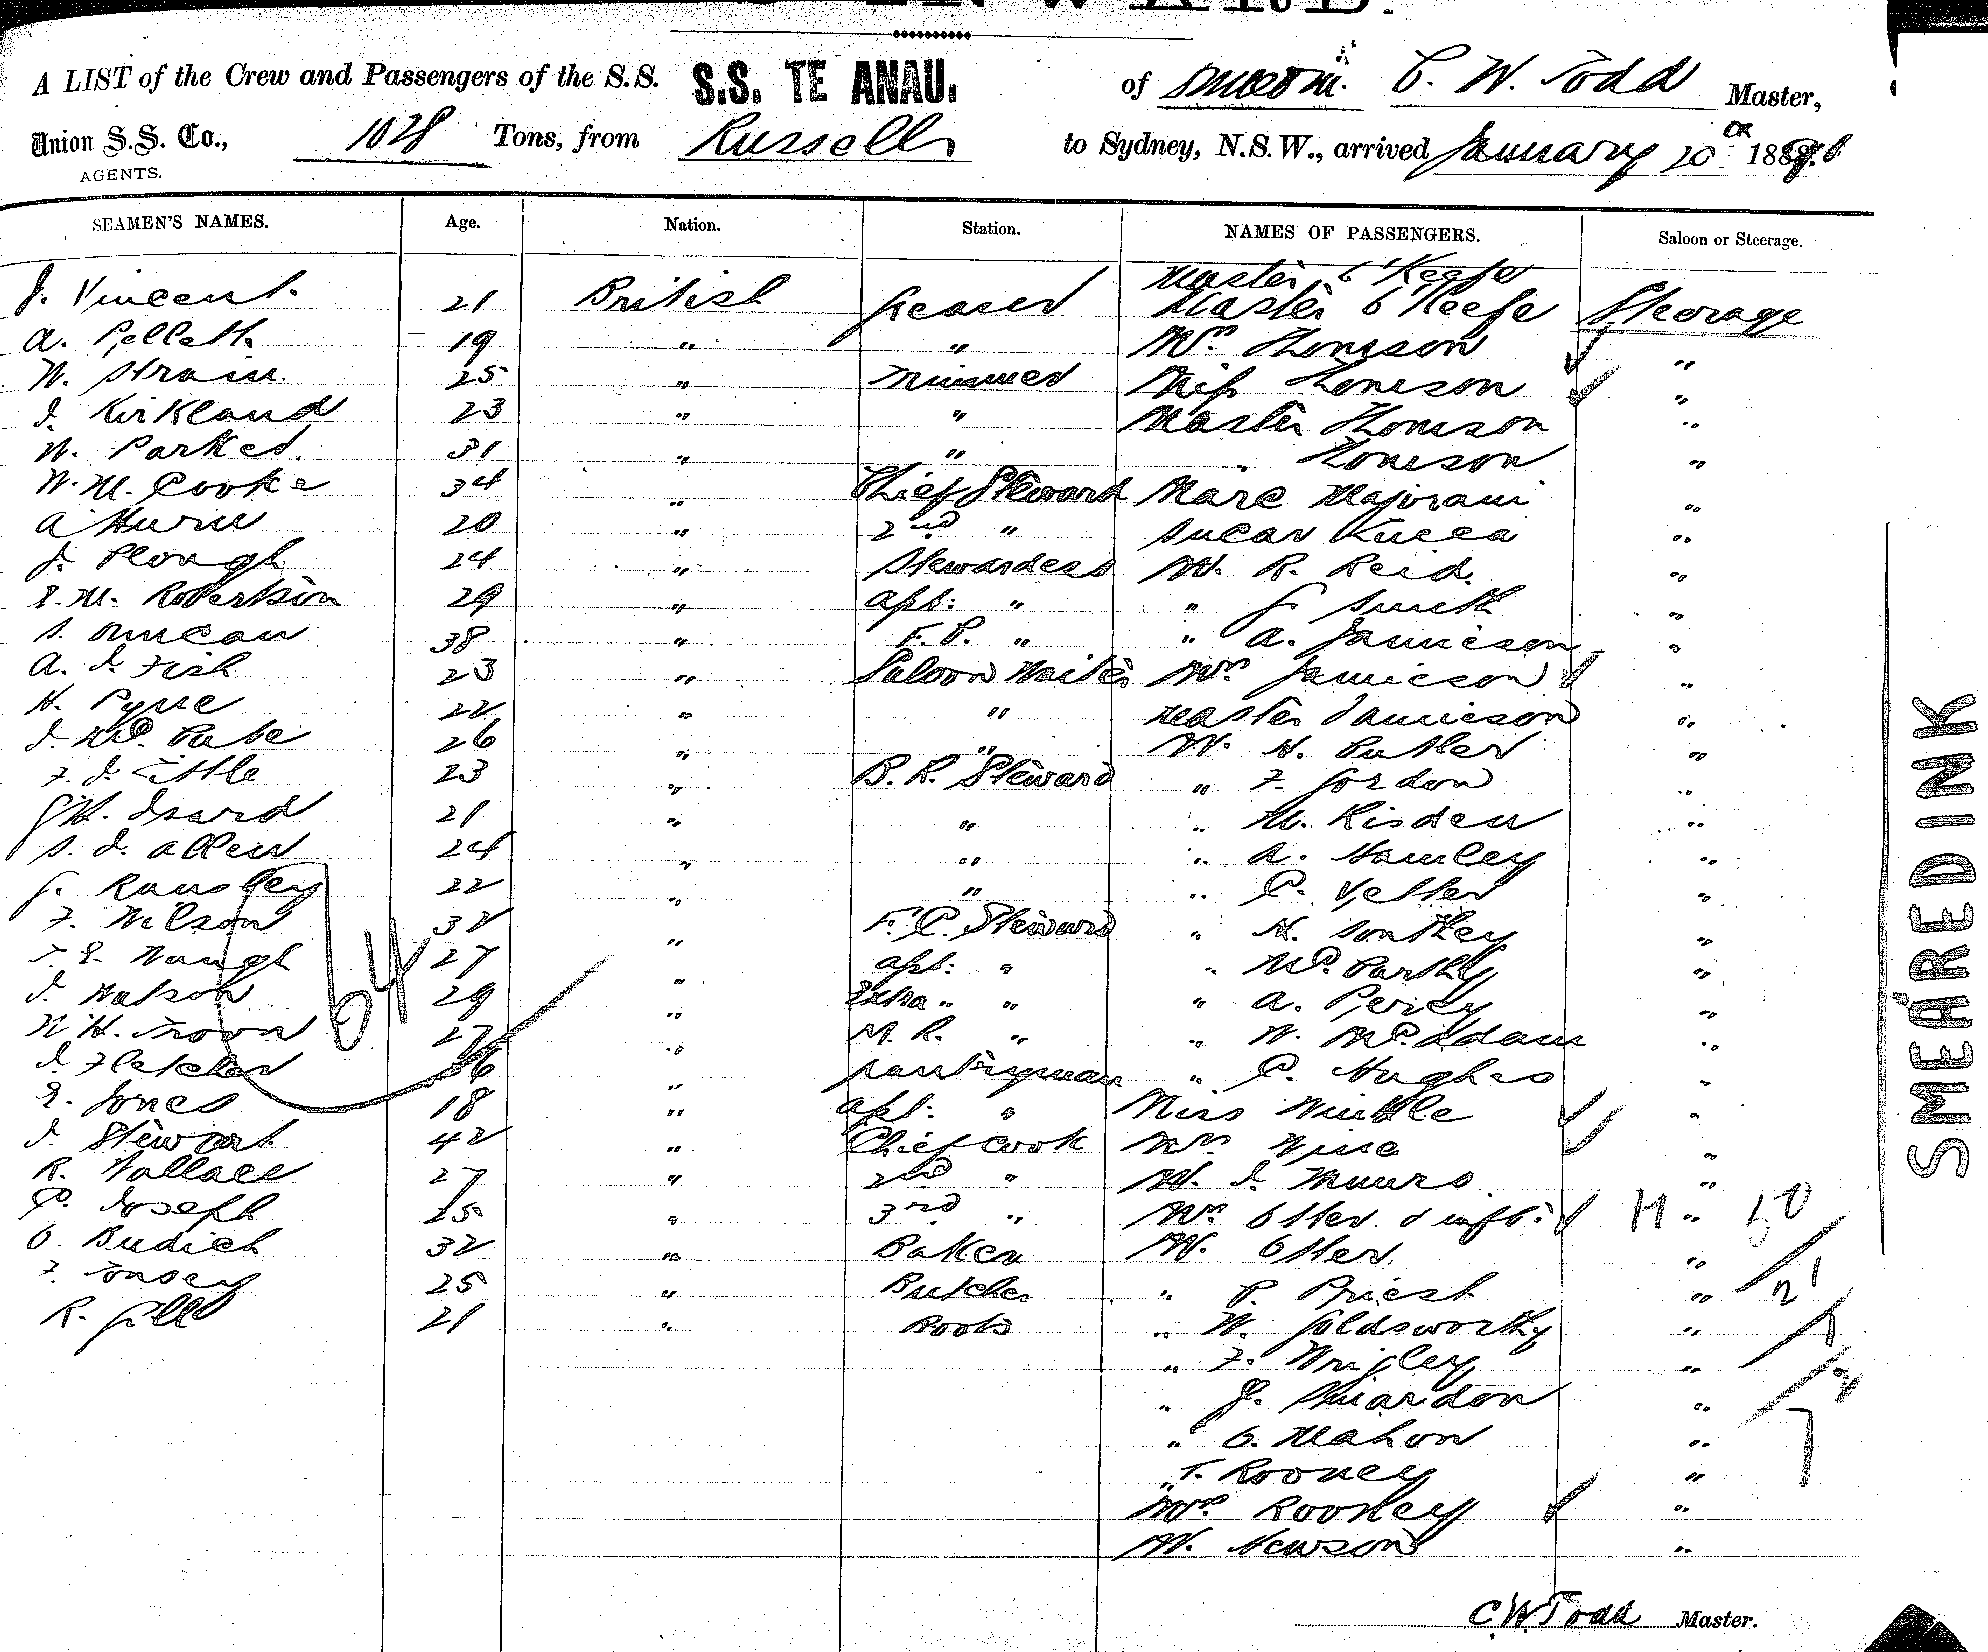 A LIST of the Crew and Passengers of the S.S. S.S. TE ANAU. of C. W. Todd Master,
Union S.S. Co., 1028 Tons, from Russell to Sydney, N.S.W., arrived January 20 18
AGENTS.
SEAMEN'S NAMES. Age. Nation. Station. NAMES OF PASSENGERS. Saloon or Steerage.
Master O'Keefe
J. Vincent 21 British Greaser Master O'Keefe Steerage
A. Pellett 19 " " Mrs Thomson "
W. Strain 25 " Trimmer Miss Thomson "
J. Kirkland 23 " " Master Thomson "
W. Parker 31 " " " Thomson "
W. M. Cooke 34 " Chief Steward Marc Majorani "
A 20 " 2nd " "
J. Plough 24 " Stewardess Mr. R. Reid "
E. M. Robertson 29 " Asst: " " J. Smith "
S. Duncan 38 " F. C. " " A. Jamieson "
A. J. Fish 23 " Saloon Waiter Mrs Jamieson "
H. Pyne 22 " " Master Jamieson "
J. 26 " " Mr. H. Butler "
F. J. Little 23 " B. R. Steward " F. Gordon "
J H. Isard 21 " " " M. Risden "
S. J. Allen 24 " " " A. Hamley "
J. Ramsley 22 " " " C. Vetter "
F. Wilson 32 " F. C. Steward " H. Southey "
T. E. Waugh 27 " Asst: " " "
J. Watson 29 " Extra " " " A. Percy "
W. H. 27 " M. R. " " W. McAdam "
J. Fletcher 36 " Pantryman " C. Hughes "
E. Jones 18 " Asst: " Miss "
J. Stewart 42 " Chief Cook Mrs "
R. Wallace 27 " 2nd " Mr. J. Munro "
P. Joseph 25 " 3rd " Mrs Otter & inft: H " 50
O. Budich 32 " Baker Mr. Otter "
F. Tonsey 25 " Butcher " P. Priest " 21
R. Gill 21 " Boots " W. Goldsworthy "
" F. Wrigley "
" J. "
" O. Mahon " 7
" T. Rooney "
Mrs Rooney "
Mr. Newson "
64
SMEARED INK
C W Todd Master.